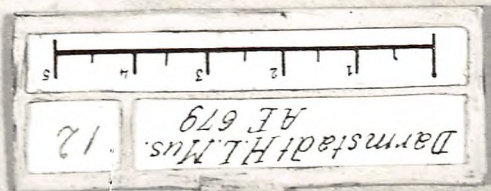 Darmstadt H.L.Mus.
AE 679
12
1 2 3 4 5